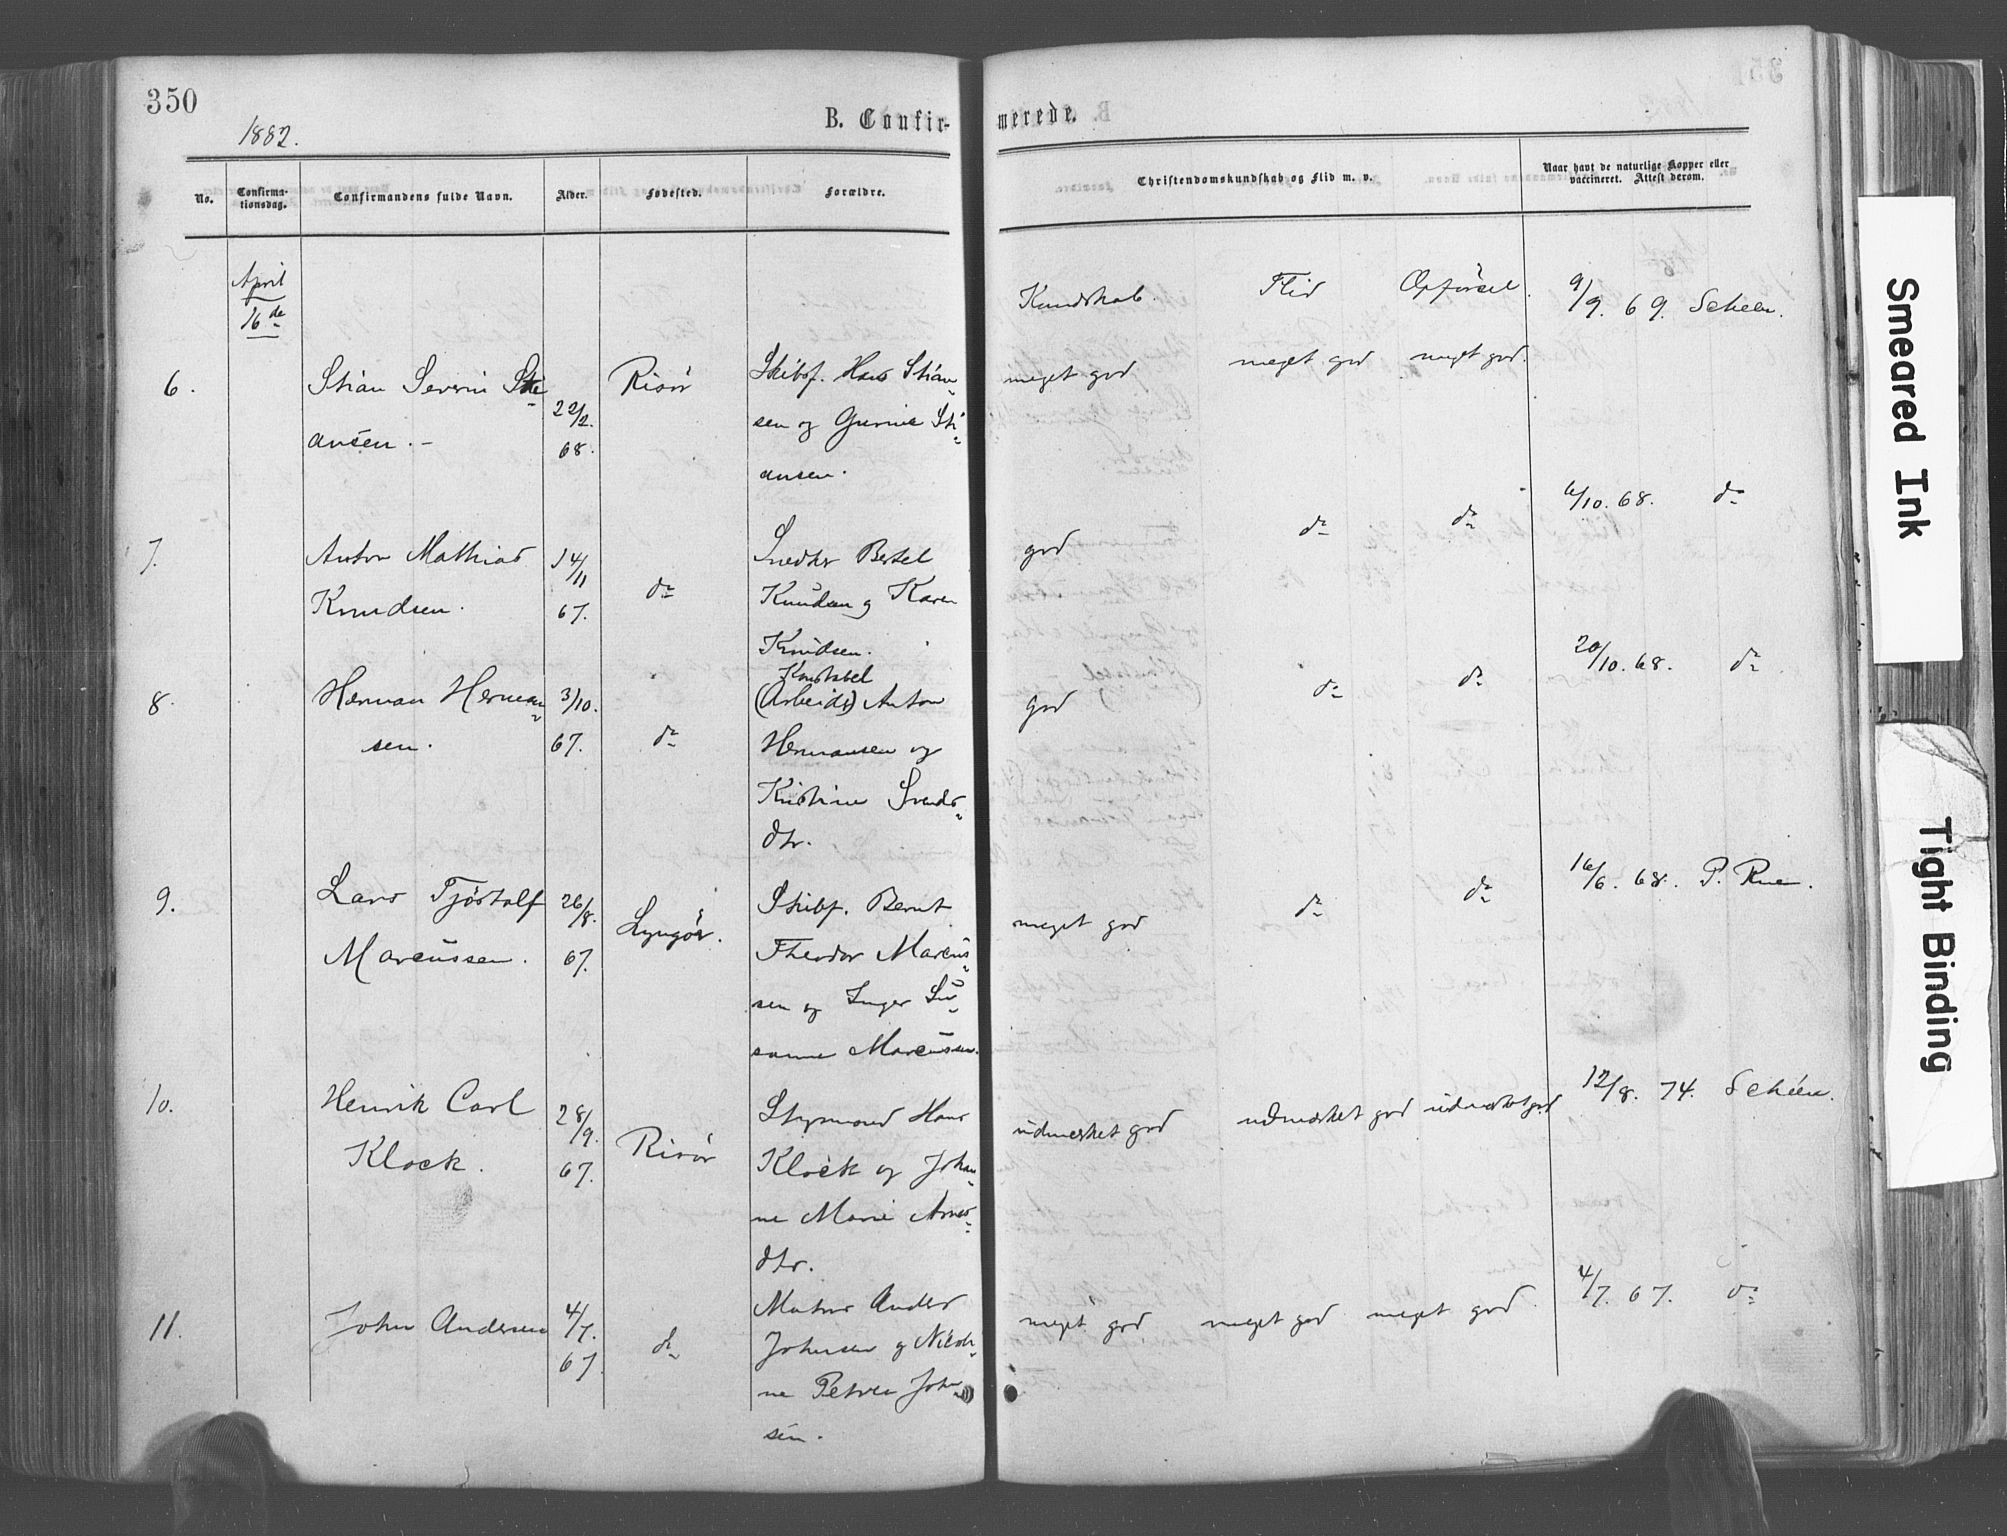 350
1882.
B. Confir-
merede.
No.
Confirma-
tionsdag.
Confirmandens fulde Navn.
Alder.
Fødested.
Forældre.
Christendomskundskab og Flid m. v.
Naar havt de naturlige Kopper eller
vaccineret. Attest derom.
April
16de
Kundskab.
Flid
Opførsel.
6.
Stian Severin Sti-
ansen.
22/2.
68.
Risör
Skibsf. Hans Stian-
sen og Gurine Sti-
ansen.
meget god
meget god
meget god.
9/9. 69. Scheen.
7.
Anton Mathias
Knudsen.
14/11
67.
do
Snedker Bertel
Knudsen og Karen
Knudsen.
god
do
do
6/10. 68. do
8.
Herman Herman-
sen.
3/10.
67.
do
Konstabel
(Arbeids) Anton
Hermansen og
Kristine Svends-
dtr.
god
do
do
20/10. 68. do
9.
Lars Tjöstolf
Marcussen.
26/8.
67.
Lyngör.
Skibsf. Bernt
Theodor Marcus-
sen og Inger Su-
sanne Marcussen.
meget god
do
do
16/6. 68. P. Rue.
10.
Henrik Carl
Klock.
28/9.
67.
Risör
Styrmand Hans
Klock og Johan-
ne Marie Arnes-
dtr.
udmærket god
udmærket god
udmærket god
12/8. 74. Scheen.
11.
John Andersen
4/7.
67.
do
Matros Anders
Johnsen og Nicoli-
ne Petrea John-
sen.
meget god
meget god
meget god.
4/7. 67. do
Smeared Ink
Tight Binding